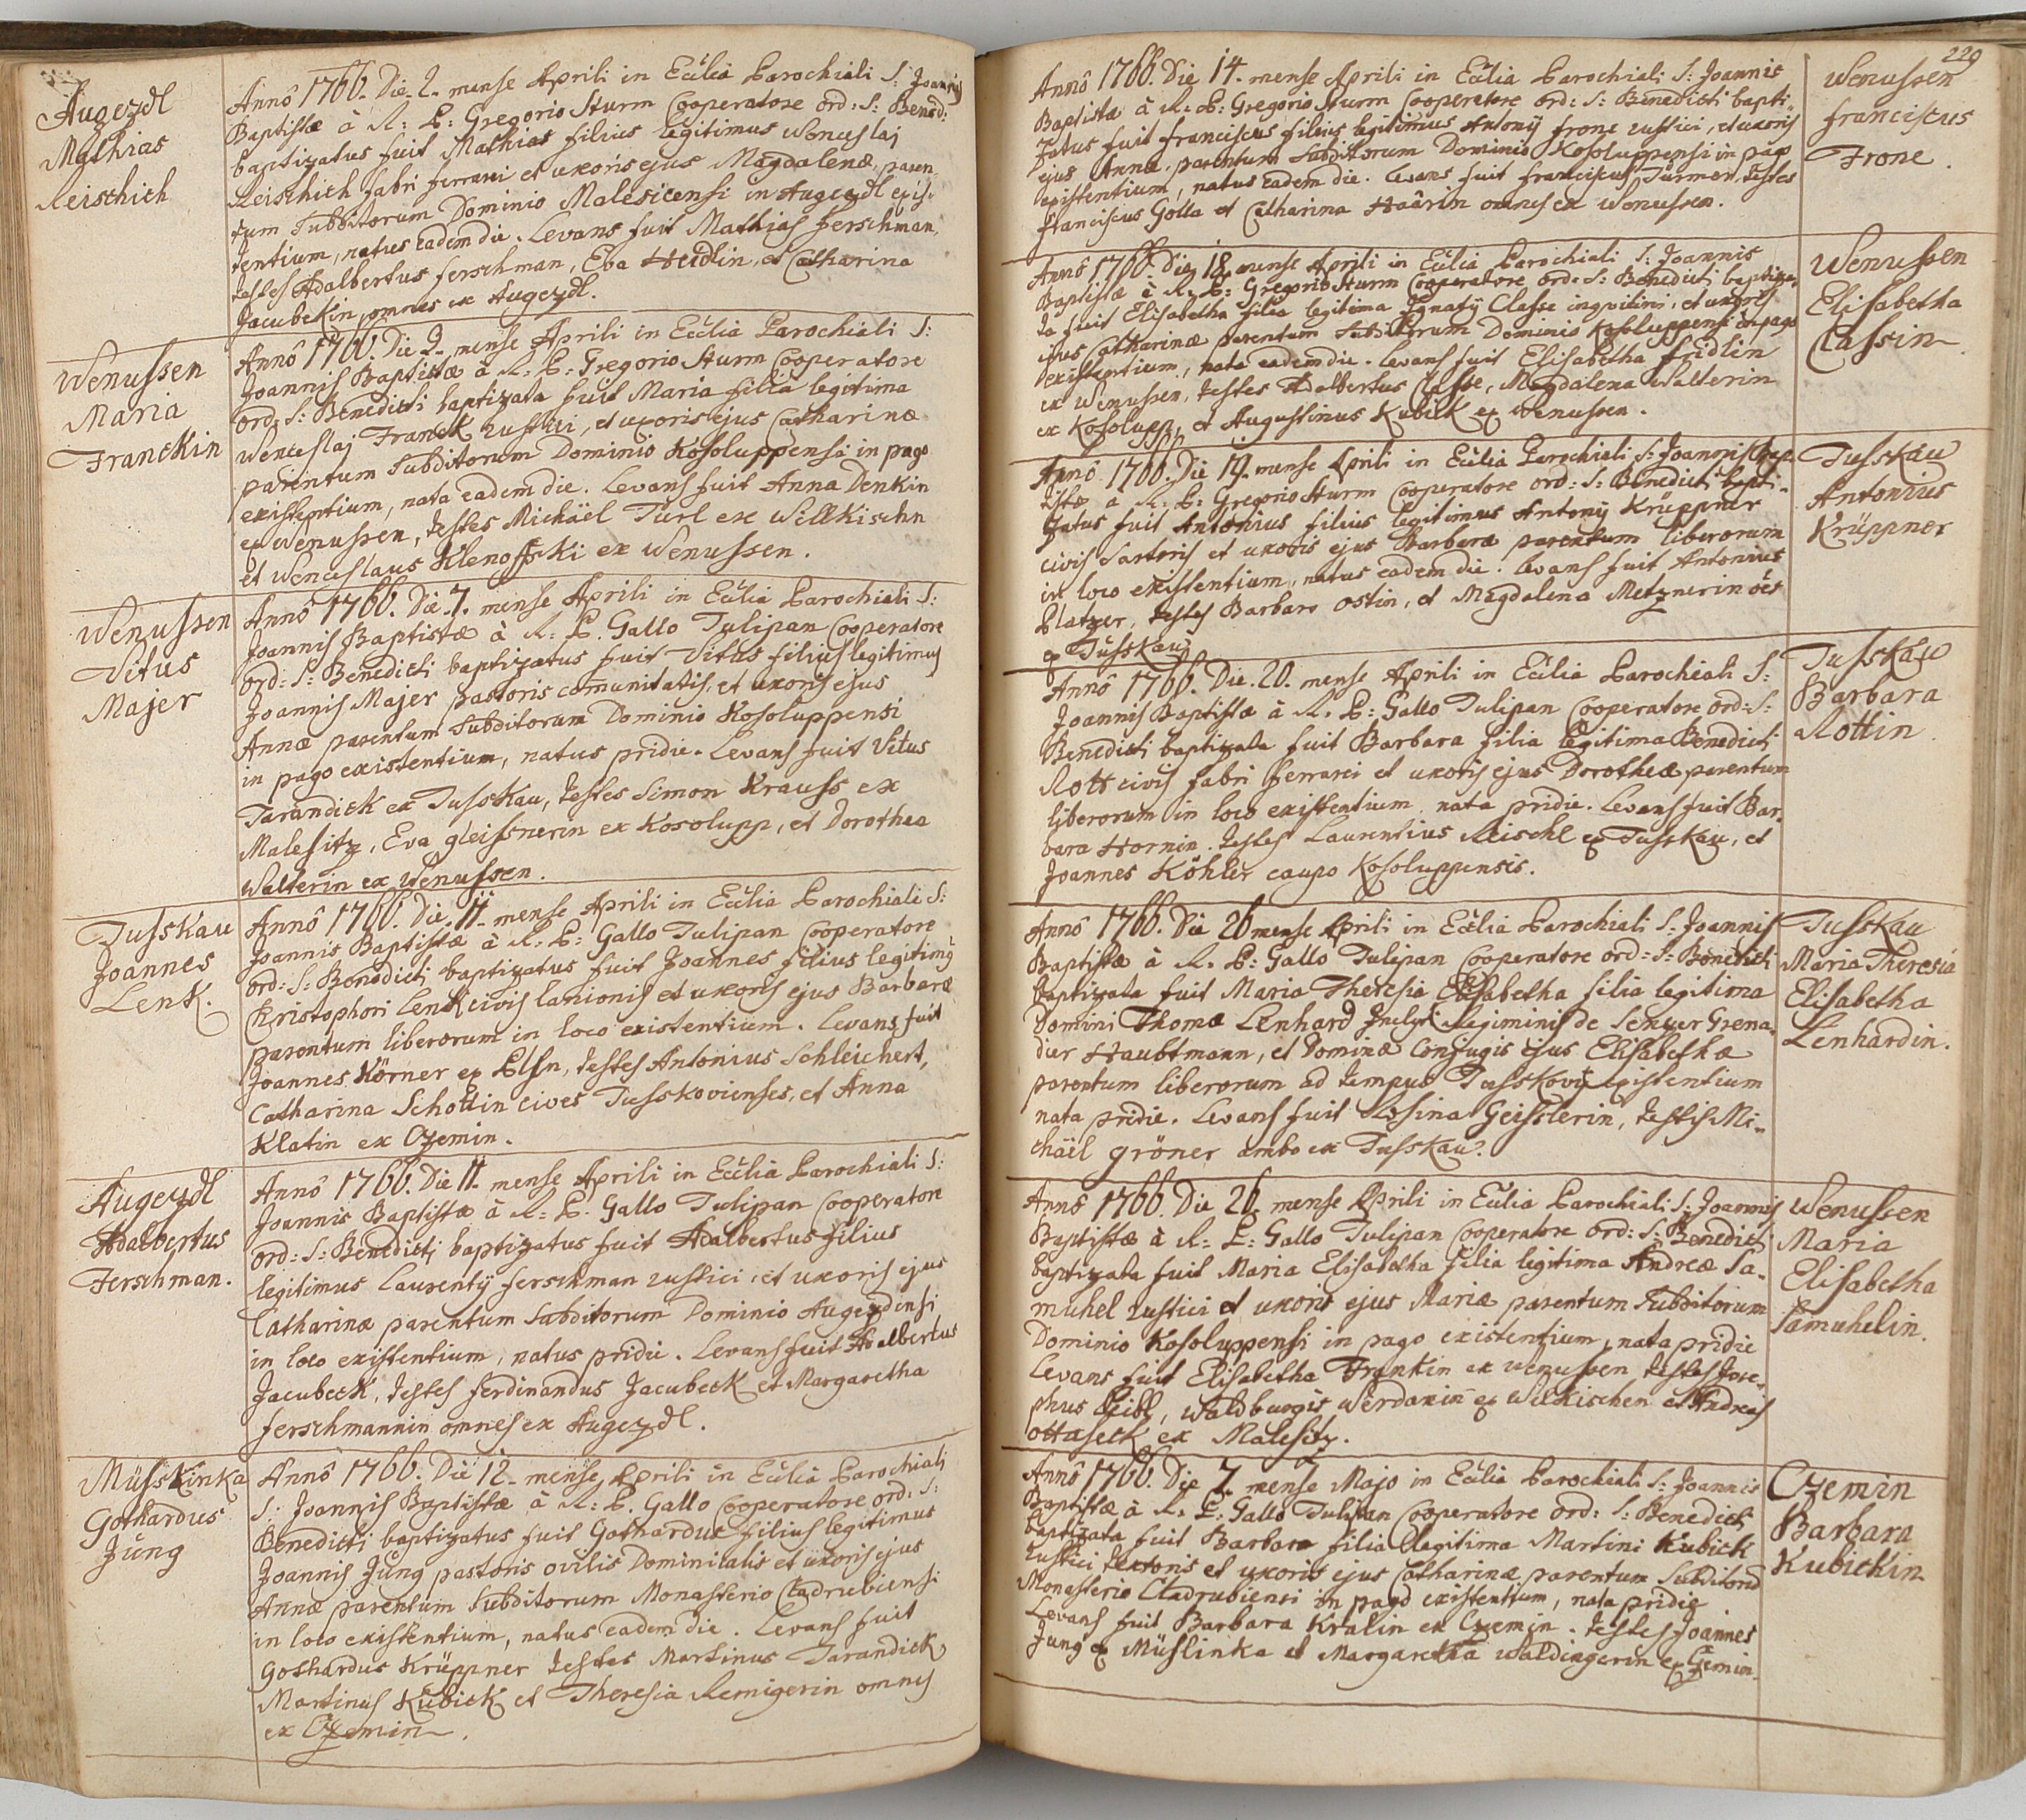 Augezdl
Mathias
Reischich
Annô 1766. Die 2. mense Aprili in Ecclia Parochiali S: Joannis
Baptistæ à R: P: Gregorio Sturm Cooperatore ord: S: Bened:
baptizatus fuit Mathias filius legitimus Wenceslaj
Reischich fabri ferrarii et uxoris ejus Magdalenæ, paren-
tum Subditorum Dominio Malesicensi in Augezdl exis-
tentium, natus eadem die. Levans fuit Mathias ferschman,
testes Adalbertus ferschman, Eva Heidlin, et Catharina
Jacubekin omnes ex Augezdl.
Wenussen
Maria
Franckin
Annô 1766. Die 2. mense Aprili in Ecclia Parochiali S:
Joannis Baptistæ à R: P: Gregorio Sturm Cooperatore
ord: S: Benedicti baptizata fuit Maria filia legitima
Wenceslaj Franck rustici, et uxoris ejus Catharinæ
parentum Subditorum Dominio Kosoluppensi in pago
existentium, nata eadem die. Levans fuit Anna Denkin
ex Wenussen, testes Michäel Türl ex Willkischn
et Wenceslaus Klenoffski ex Wenussen.
Wenussen
Vitus
Majer
Annô 1766. Die 7. mense Aprili in Ecclia Parochiali S:
Joannis Baptistæ à R: P. Gallo Tulipan Cooperatore
ord: S: Benedicti baptizatus fuit Vitus filius legitimus
Joannis Majer pastoris comunitatis, et uxoris ejus
Annæ parentum Subditorum Dominio Kosoluppensi
in pago existentium, natus pridie. Levans fuit Vitus
Tarandick ex Tusskau, testes Simon Krauss ex
Malesitz, Eva gleissnerin ex Kosolupp, et Dorothea
Walterin ex Wenussen.
Tusskau
Joannes
Lenk.
Annô 1766. Die 11. mense Aprili in Ecclia Parochiali S:
Joannis Baptistæ à R: P: Gallo Tulipan Cooperatore
ord: S: Benedicti baptizatus fuit Joannes filius legitimus
Christophori Lenk civis lanionis et uxoris ejus Barbaræ
parentum liberorum in loco existentium. Levans fuit
Joannes Körner ex Plsn, testes Antonius Schleichert,
Catharina Schottin cives Tusskovienses, et Anna
Klatin ex Czemin.
Augezdl
Adalbertus
Ferschman.
Annô 1766. Die 11. mense Aprili in Ecclia Parochiali S:
Joannis Baptistæ à R: P. Gallo Tulipan Cooperatore
ord: S: Benedicti baptizatus fuit Adalbertus filius
legitimus Laurentij ferschman rustici, et uxoris ejus
Catharinæ parentum Subditorum Dominio Augezdensi
in loco existentium, natus pridie. Levans fuit Adalbertus
Jacubeck, testes ferdinandus Jacubeck et Margaretha
ferschmannin omnes ex Augezdl.
Müsskinka
Gothardus
Jüng
Annô 1766. Die 12. mense Aprili in Ecclia Parochiali
S: Joannis Baptistæ à R: P. Gallo Cooperatore ord: S:
Benedicti baptizatus fuit Gothardus filius legitimus
Joannis Jüng pastoris ovilis Dominicalis et uxoris ejus
Annæ parentum Subditorum Monasterio Cladrubiensi
in loco existentium, natus eadem die. Levans fuit
Gothardus Krüppner testes Martinus Tarandick
Martinus Kubick et Theresia Remigerin omnes
ex Czemin.
229
Annô 1766. Die 14. mense Aprili in Ecclia Parochiali S: Joannis
Baptistæ à R: P: Gregorio Sturm Cooperatore ord: S: Benedicti bapti-
zatus fuit franciscus filius legitimus Antonij frone rustici, et uxoris
ejus Annæ, parentum Subditorum Dominio Kosoluppensi in pago
existentium, natus eadem die. Levans fuit franciscus Türmer, testes
franciscus Gölla et Catharina Haärin omnes ex Wenussen.
Wenussen
franciscus
Frone.
Annô 1766. Die 18. mense Aprili in Ecclia Parochiali S: Joannis
Baptistæ à R: P: Gregorio Sturm Cooperatore ord: S: Benedicti baptiza-
ta fuit Elisabetha filia legitima Ignatij Classe inquilini, et uxoris
ejus Catharinæ parentum Subditorum Dominio Kosoluppensi in pago
existentium, nata eadem die. Levans fuit Elisabetha fridlin
ex Wenussen, testes Adalbertus Classe, Magdalena Walterin
ex Kosolupp, et Augustinus Kubick ex Wenussen.
Wenussen
Elisabetha
Classin
Annô 1766. Die 19. mense Aprili in Ecclia Parochiali S: Joannis Bap-
tistæ à R: P: Gregorio Sturm Cooperatore ord: S: Benedicti bapti-
zatus fuit Antonius filius legitimus Antonij Krüppner
civis Sartoris et uxoris ejus Barbaræ parentum liberorum
in loco existentium, natus eadem die. Levans fuit Antonius
Platzer, testes Barbara Ostin, et Magdalena Metznerin oes
ex Tusskau.
Tusskau
Antonius
Krüppner
Annô 1766. Die 20. mense Aprili in Ecclia Parochiali S:
Joannis Baptistæ à R. P: Gallo Tulipan Cooperatore ord: S:
Benedicti baptizata fuit Barbara filia legitima Benedicti
Rott civis fabri ferrarii et uxoris ejus Dorotheæ parentum
liberorum in loco existentium nata pridie. Levans fuit Bar-
bara Hornin. testes Laurentius Reischl ex Tusskau, et
Joannes Köhler caupo Kosoluppensis.
Tusskau
Barbara
Rottin.
Annô 1766. Die 26 mense Aprili in Ecclia Parochiali S: Joannis
Baptistæ à R. P: Gallo Tulipan Cooperatore ord: S: Benedicti
baptizata fuit Maria Theresia Elisabetha filia legitima
Domini Thomæ Lenhard Inclyti Regiminis de Grena-
dier Haubtmann, et Dominæ Conjugis ejus Elisabethæ
parentum liberorum ad tempus Tusskovij existentium
nata pridie. Levans fuit Rosina Geisslerin, testis Mi-
chäel gröner ambo ex Tusskau.
Tusskau
Maria Theresia
Elisabetha
Lenhardin.
Annô 1766. Die 26. mense Aprili in Ecclia Parochiali S: Joannis
Baptistæ à R: P: Gallo Tulipan Cooperatore ord: S: Benedicti
baptizata fuit Maria Elisabetha filia legitima Andreæ Sa-
muhel rustici et uxoris ejus Mariæ parentum Subditorum
Dominio Kosoluppensi in pago existentium, nata pridie
Levans fuit Elisabetha Frankin ex Wenussen testes Jose-
phus Waldburgis Werdanin ex Wilkischen et Andreas
ottaseck ex Malesitz.
Wenussen
Maria
Elisabetha
Samuhelin.
Annô 1766. Die 7. mense Majo in Ecclia Parochiali S: Joannis
Baptistæ à R. P: Gallo Tulipan Cooperatore ord: S: Benedicti
baptizata fuit Barbara filia legitima Martini Kubick
rustici textoris et uxoris ejus Catharinæ parentum Subditorum
Monasterio Cladrubiensi in pago existentium, nata pridie
Levans fuit Barbara Kralin ex Czemin. testes Joannes
Jung ex Müslinka et Margaretha Waldingerin ex Czemin.
Czemin
Barbara
Kubickin